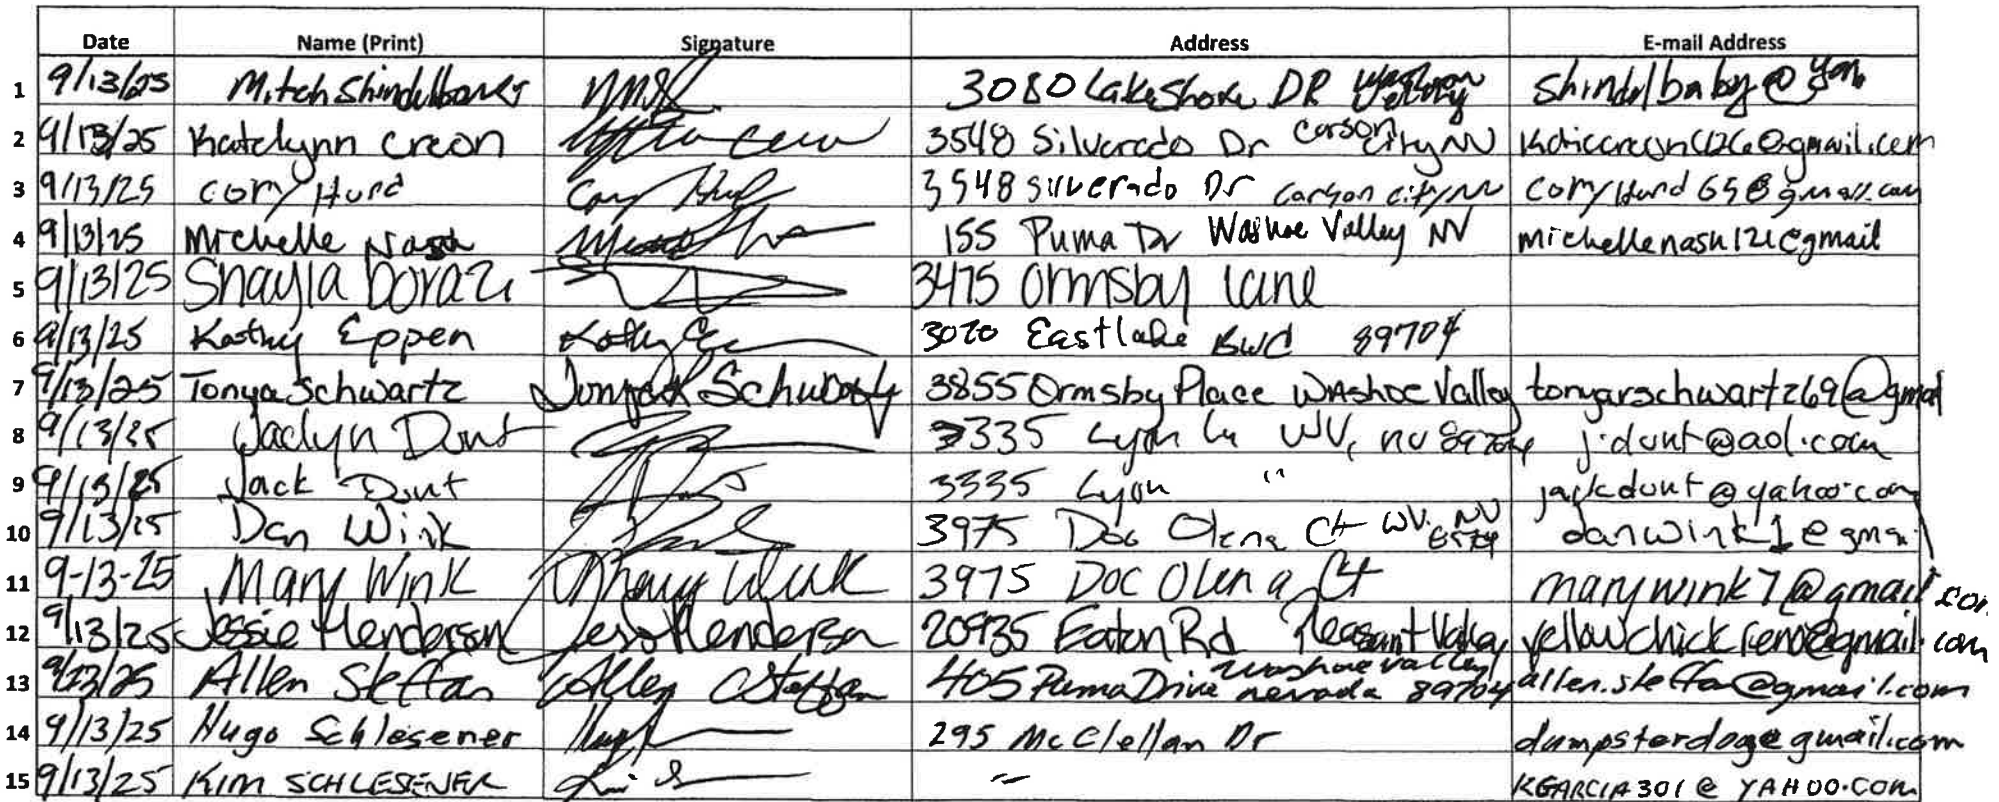 Date Name (Print) Signature Address E-mail Address
1 9/13/25 Mitch 3080 Lakeshore DR Washoe Valley shindlbaby@
2 9/13/25 Katelynn Creon 3548 Silverado Dr Carson City NV
3 9/13/25 Cory Hurd Cory 3548 Silverado Dr Carson City NV CoryHurd65@gmail.com
4 9/13/25 Michelle Nash 155 Puma Dr Washoe Valley NV michellenash121@gmail
5 9/13/25 Shayla Dorazi 3475 Ormsby Lane
6 9/13/25 Kathy Eppen Kathy 3020 Eastlake BLVD 89704
7 9/13/25 Tonya Schwartz 3855 Ormsby Place Washoe Valley tonyarschwartz69@gmal
8 9/13/25 Jaclyn Dunt 3335 Lyon Ln WV, NV 89704 j.dunt@aol.com
9 9/13/25 Jack Dunt 3335 Lyon " jackdunt@yahoo.com
10 9/13/25 Dan Wink 3975 Doc Olena Ct WV. NV danwink1@gmai
11 9-13-25 Mary Wink Mary Wink 3975 Doc Olena Ct marywink7@gmail.com
12 9/13/25 Jessie Henderson Jess Henderson 20935 Eaton Rd Pleasant Valley yellowchickreno@gmail.com
13 9/13/25 Allen Steffan Allen C Steffan 405 Puma Drive Washoe Valley nevada 89704 allen.steffan@gmail.com
14 9/13/25 Hugo Schlesener 295 McClellan Dr dumpsterdog@gmail.com
15 9/13/25 KIM SCHLESENER " KGARCIA301@YAHOO.COM